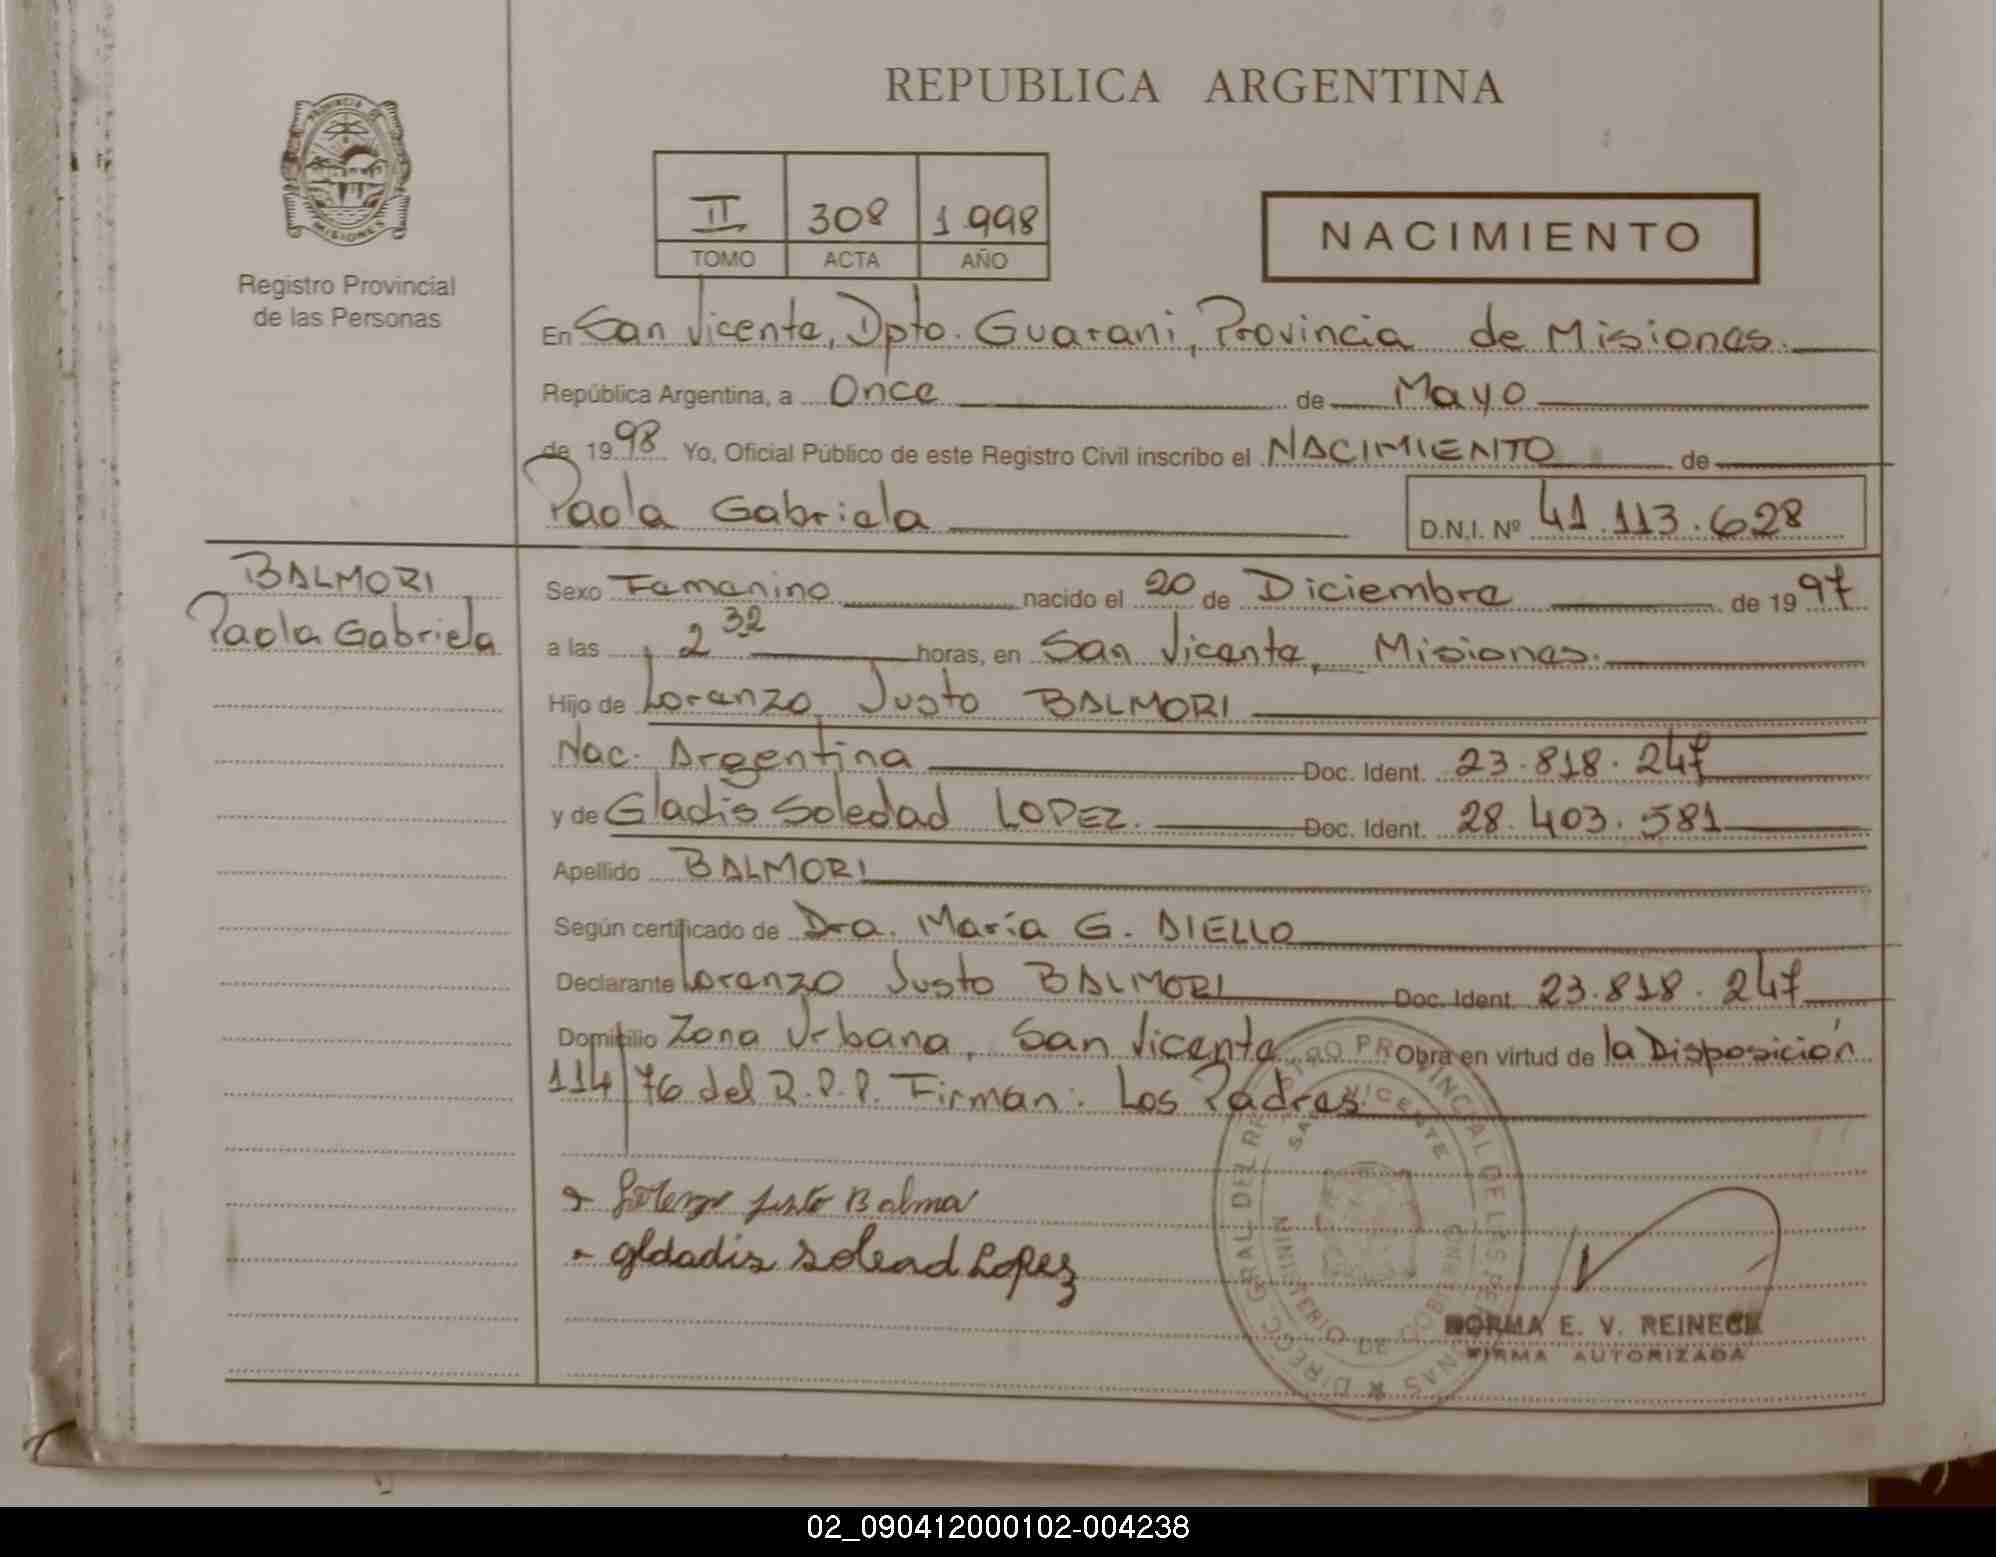 REPUBLICA ARGENTINA
PROVINCIA DE
MISIONES
Registro Provincial
de las Personas
II 308 1998
TOMO ACTA AÑO
NACIMIENTO
En San Vicente, Dpto. Guarani, Provincia de Misiones.
República Argentina, a Once de Mayo
de 1998 Yo, Oficial Público de este Registro Civil inscribo el NACIMIENTO de
Paola Gabriela D.N.I. Nº 41.113.628
BALMORI
Paola Gabriela
Sexo Femenino nacido el 20 de Diciembre de 1997
a las 2 32 horas, en San Vicente, Misiones.
Hijo de Lorenzo Justo BALMORI
Nac. Argentina Doc. Ident. 23.818.247
y de Gladis Soledad LOPEZ. Doc. Ident. 28.403.581
Apellido BALMORI
Según certificado de Dra. María G. DIELLO
Declarante Lorenzo Justo BALMORI Doc. Ident. 23.818.247
Domicilio Zona Urbana, San Vicente Obra en virtud de la Disposición
114/76 del R.P.P. Firman: Los Padres
Justo Balma
gldadis solead Lopez
DIRECC. GRAL. DEL REGISTRO PROVINCIAL DE LAS PERSONAS
SAN VICENTE
MINISTERIO DE GOBIERNO
NORMA E. V. REINECK
FIRMA AUTORIZADA
02_090412000102-004238